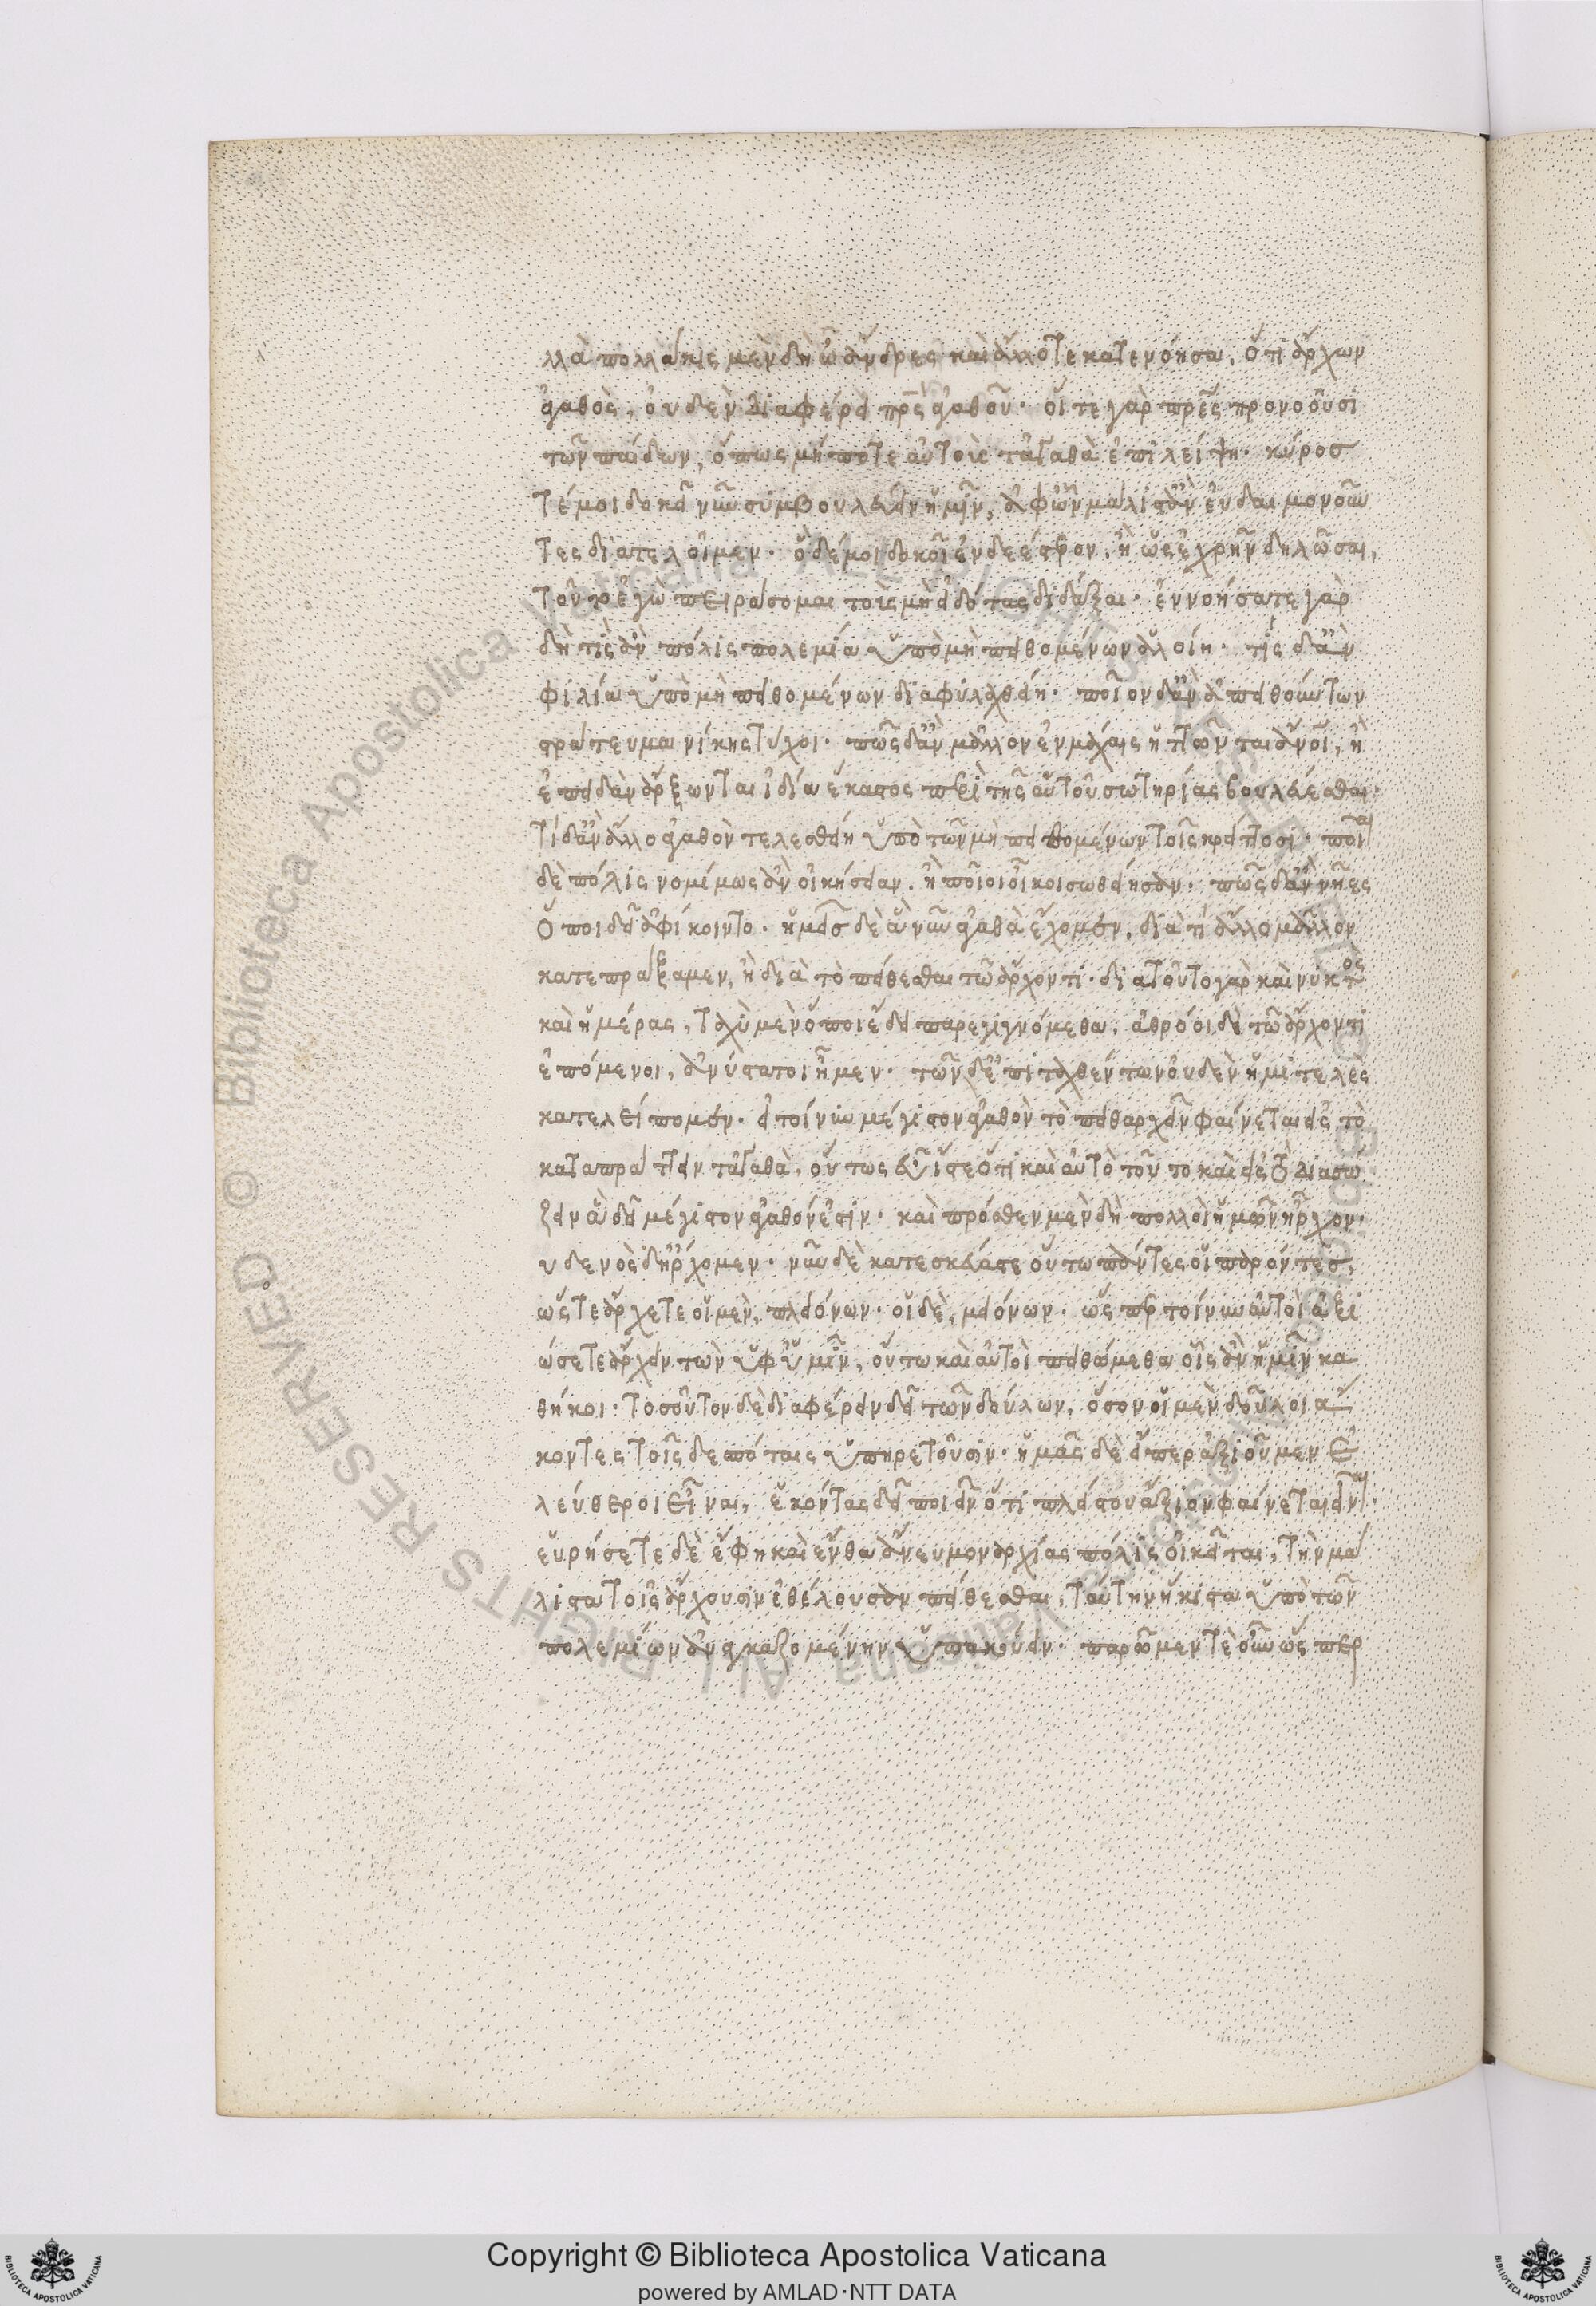 λλὰ πολλάκις μὲν δὴ ὦ ἄνδρες καὶ ἄλλοτε κατενόησα, ὅτι ἄρχων
ἀγαθὸς, οὐδὲν διαφέρει πρς ἀγαθοῦ· οἵ τε γὰρ πρες προνοοῦσι
τῶν παίδων, ὅπως μήποτε αὐτοὺς τἀγαθὰ ἐπιλείψη· κῦροσ
τέ μοι δοκεῖ νῦν συμβουλεύειν ἡμῖν, ἀφ' ὧν μάλιστ' ἂν εὐδαιμονοῦν
τες διατελοῖμεν· ὃ δέ μοι δοκεῖ ἐνδεέστερον, ἢ ὡς ἐχρῆν δηλῶσαι,
τοῦτο ἐγὼ πειράσομαι τοὺς μὴ εἰδότας διδάξαι· ἐννοήσατε γὰρ
δὴ τίς ἂν πόλις πολεμία ὑπὸ μὴ πειθομένων ἁλοίη· τίς δ' ἂν
φιλία ὑπὸ μὴ πειθομένων διαφυλαχθείη· ποῖον δ' ἂν ἀπειθούντων
στράτευμα νίκης τύχοι· πῶς δ' ἂν μᾶλλον ἐν μάχαις ἡττῶνται ἄνοι, ἢ
ἐπειδὰν ἄρξωνται ἰδία ἕκαστος περὶ τῆς αὑτοῦ σωτηρίας βουλεύεσθαι·
τί δ' ἂν ἄλλο ἀγαθὸν τελεσθείη ὑπὸ τῶν μὴ πειθομένων τοῖς κρείττοσι· ποῖαι
δὲ πόλις νομίμως ἂν οἰκήσειαν· ἢ ποῖοι οἶκοι σωθείησαν· πῶς δ' ἂν νῆες
ὅποι δεῖ ἀφίκοιντο· ἡμεῖσ δὲ ἃ νῦν ἀγαθὰ ἔχομεν, διὰ τί ἄλλο μᾶλλον
κατεπράξαμεν, ἢ διὰ τὸ πείθεσθαι τῶ ἄρχοντι· διὰ τοῦτο γὰρ καὶ νυκτος
καὶ ἡμέρας, ταχὺ μὲν ὅποι ἔδει παρεγιγνόμεθα, ἀθρόοι δὲ τῶ ἄρχοντι
ἑπόμενοι, ἀνύστατοι ἦμεν· τῶν δ' ἐπιταχθέντων οὐδὲν ἡμιτελὲς
κατελείπομεν· εἰ τοίνυν μέγιστον ἀγαθὸν τὸ πειθαρχεῖν φαίνεται εἰς τὸ
καταπράττειν τἀγαθὰ, οὕτως εὖ ἴστε ὅτι καὶ αὐτὸ τοῦτο καὶ εἰς τὸ διασώ
ζειν ἃ δεῖ μέγιστον ἀγαθόν ἐστιν· καὶ πρόσθεν μὲν δὴ πολλοὶ ἡμῶν ἦρχον·
υδενὸς δ' ἤρχομεν· νῦν δὲ κατεσκεύασθε οὕτω πάντες οἱ παρόντεσ,
ὥστε ἄρχετε οἱ μὲν, πλειόνων· οἱ δὲ, μειόνων· ὥσπερ τοίνυν αὐτοὶ ἀξι
ώσετε ἄρχειν τῶν ὑφ' ὑμῖν, οὕτω καὶ αὐτοὶ πειθώμεθα οἷς ἂν ἡμῖν κα
θήκοι· τοσοῦτον δὲ διαφέρειν δεῖ τῶν δούλων, ὅσον οἱ μὲν δοῦλοι ἄ
κοντες τοῖς δεσπόταις ὑπηρετοῦσιν· ἡμᾶς δὲ εἴπερ ἀξιοῦμεν ἐ
λεύθεροι εἶναι, ἑκόντας δεῖ ποιεῖν ὅτι πλείστου ἄξιον φαίνεται εἶναι·
εὑρήσετε δὲ ἔφη καὶ ἔνθα ἄνευ μοναρχίας πόλις οἰκεῖται, τὴν μά
λιστα τοῖς ἄρχουσιν ἐθέλουσαν πείθεσθαι, ταύτην ἥκιστα ὑπὸ τῶν
πολεμίων ἀναγκαζομένην ὑπακούειν· παρῶμεν τὲ οὖν ὥσπερ
Copyright © Biblioteca Apostolica Vaticana
powered by AMLAD·NTT DATA